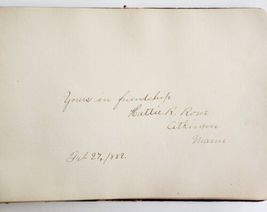 Yours in friendship
Hattie R. Rowe
Atkinson
Maine
Feb 27, 1882.